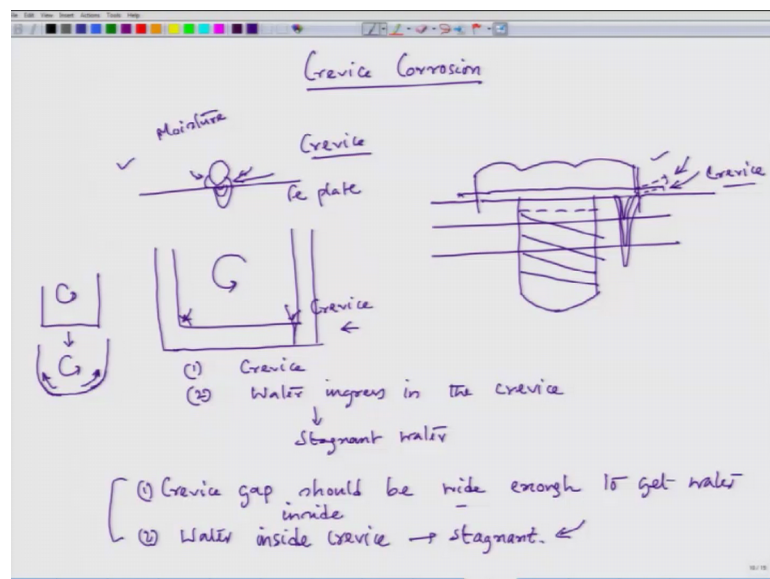 File Edit View Insert Actions Tools Help
Crevice Corrosion
Moisture
Crevice
Fe plate
Crevice
Crevice
(1) Crevice
(2) Water ingress in the crevice
Stagnant water
(1) Crevice gap should be wide enough to get water
inside
(2) Water inside crevice → stagnant.